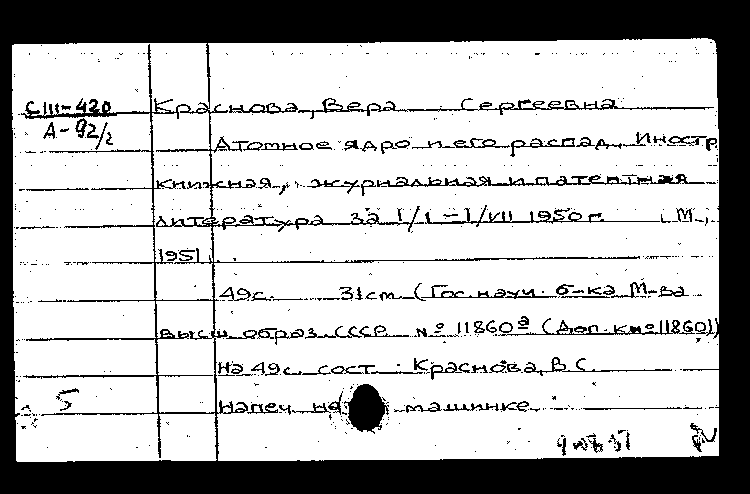 СIII-420 Краснова, Вера Сергеевна
А-92/2
Атомное ядро и его распад. Иностр
книжная, журнальная и патентная
литература за I/I-I/VII 1950 г. М.,
1951.
49с. 31cm (Гос. науч. б-ка М-ва
высш. образ. СССР № 11860а (Доп. к № 11860))
На 49с. сост. Краснова, В С.
Напеч. на машинке
5